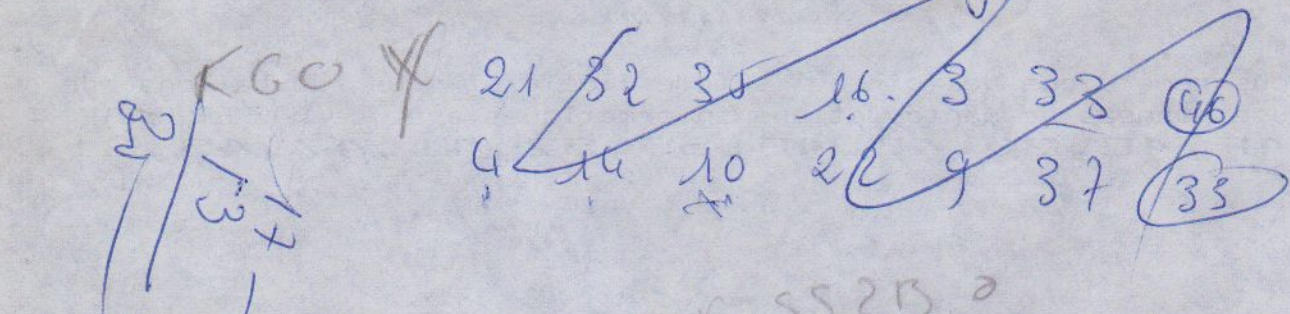 KGO
21 32 35 16. 3 33 46
4 14 10 22 9 37 33
13
17